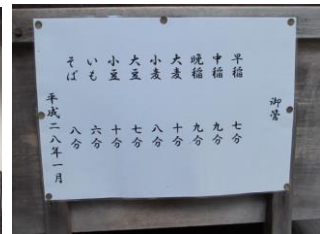 御管
早稲 七分
中稲 九分
晩稲 九分
大麦 十分
小麦 八分
大豆 七分
小豆 十分
いも 六分
そば 八分
平成二八年一月